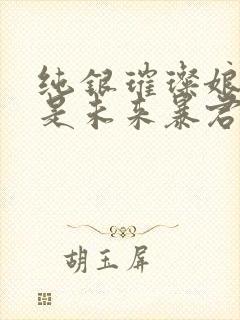 纯银璀璨娘
是未来暴君
胡玉屏